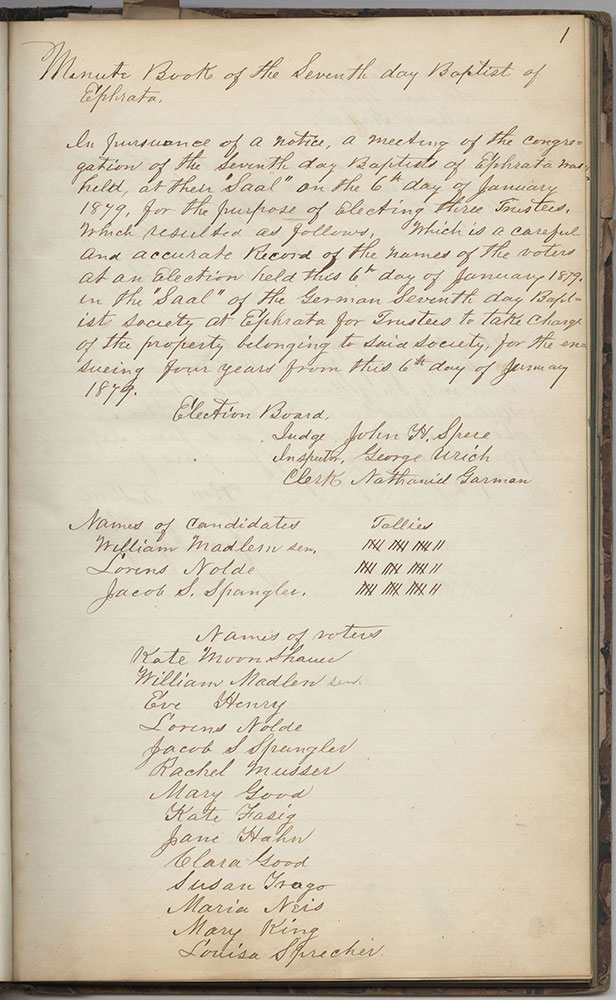 1
Minute Book of the Seventh day Baptist of
Ephrata.
In pursuance of a notice, a meeting of the congre=
gation of the Seventh day Baptists of Ephrata was
held, at their "Saal" on the 6th day of January
1879, for the purpose of Electing three Trustees,
Which resulted as follows, Which is a careful
and accurate Record of the names of the voters
at an Election held this 6th day of January 1879.
in the "Saal" of the German Seventh day Bapt=
ist Society at Ephrata for Trustees to take Charge
of the property belonging to said Society, for the en=
sueing four years from this 6th day of January
1879.
Election Board.
Judge John H. Spere
Inspector, George Urich
Clerk Nathaniel Garman
Names of Candidates Tallies
William Madlem sen. 𝍸 𝍸 𝍸 II
Lorens Nolde 𝍸 𝍸 𝍸 II
Jacob S. Spangler. 𝍸 𝍸 𝍸 II
Names of voters
Kate Moonshauer
William Madlem sen.
Eve Henry
Lorens Nolde
Jacob S Spangler
Rachel Musser
Mary Good
Kate Fasig
Jane Hahn
Clara Good
Susan Trago
Maria Neis
Mary King
Louisa Sprecher.